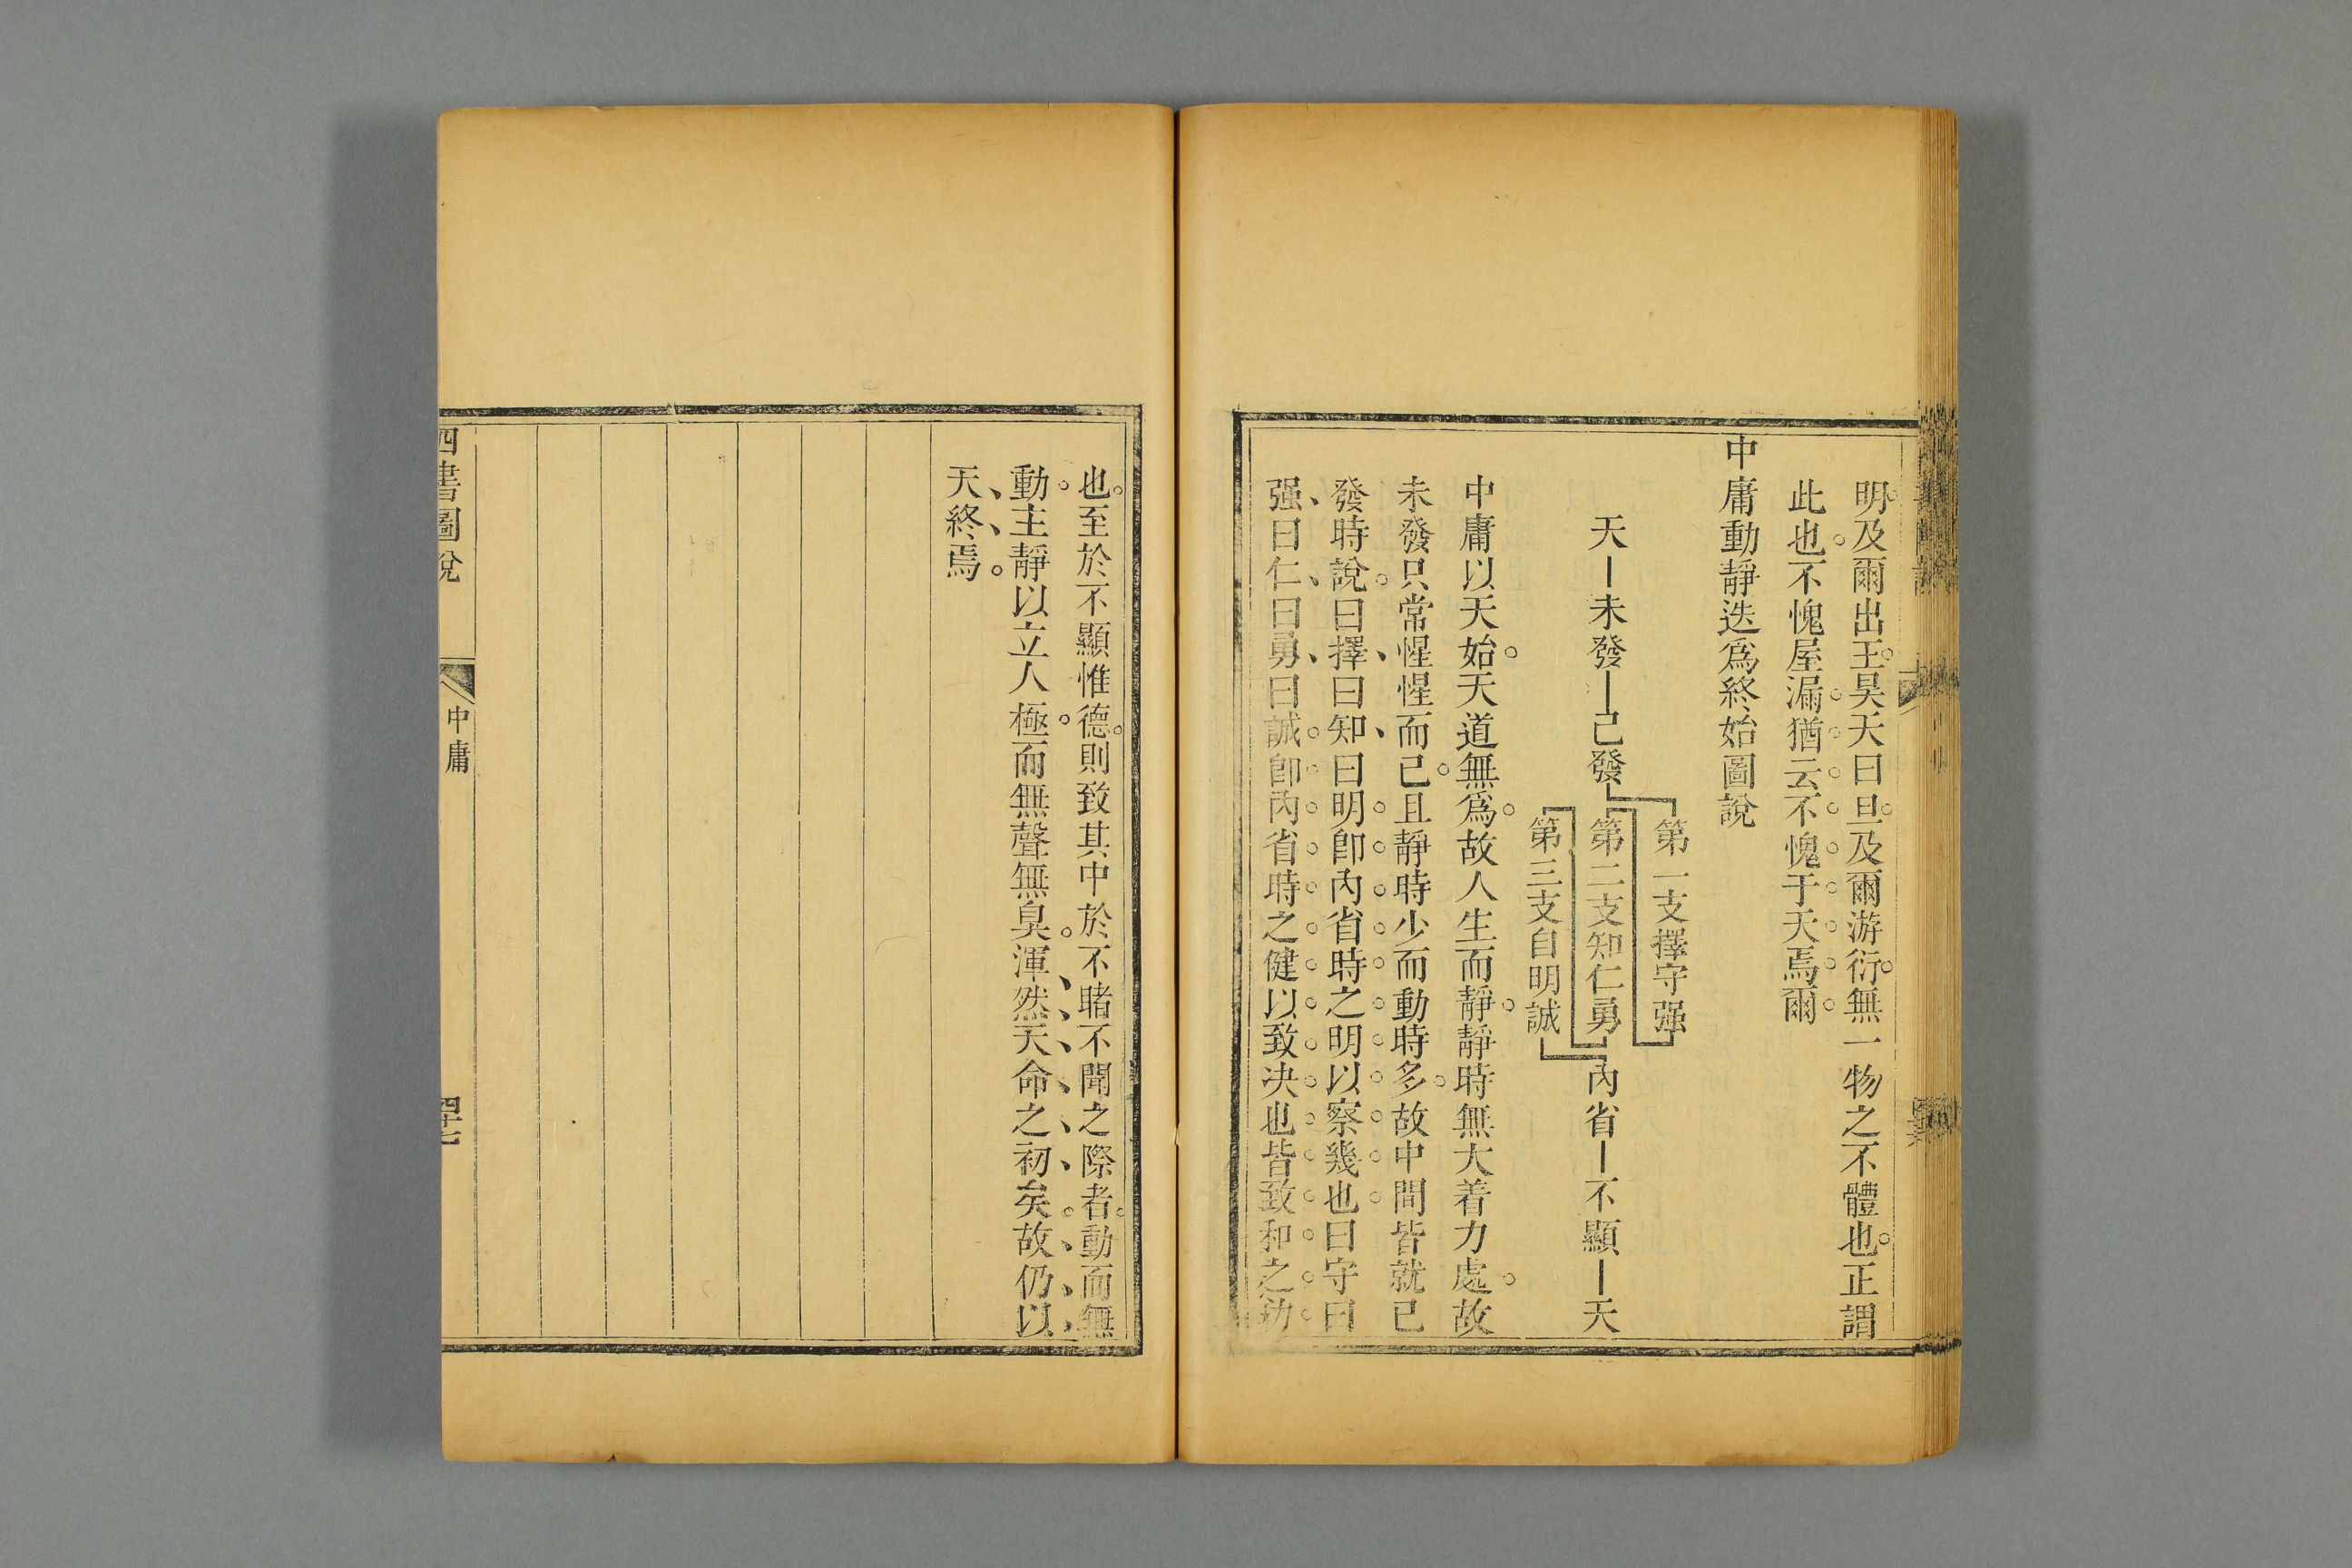 明及爾出王昊天曰旦及爾游衍無一物之不體也正謂
此也不愧屋漏猶云不愧于天焉爾
中庸動靜迭爲終始圖說
天—未發—已發
第一支擇守强
第二支知仁勇
第三支自明誠
內省—不顯—天
中庸以天始天道無爲故人生而靜靜時無大着力處故
未發只常惺惺而已且靜時少而動時多故中間皆就已
發時說曰擇曰知曰明卽內省時之明以察幾也曰守曰
强曰仁曰勇曰誠卽內省時之健以致决也皆致和之功
也至於不顯惟德則致其中於不睹不聞之際者動而無
動主靜以立人極而無聲無臭渾然天命之初矣故仍以
天終焉
四書圖說
中庸
四十七